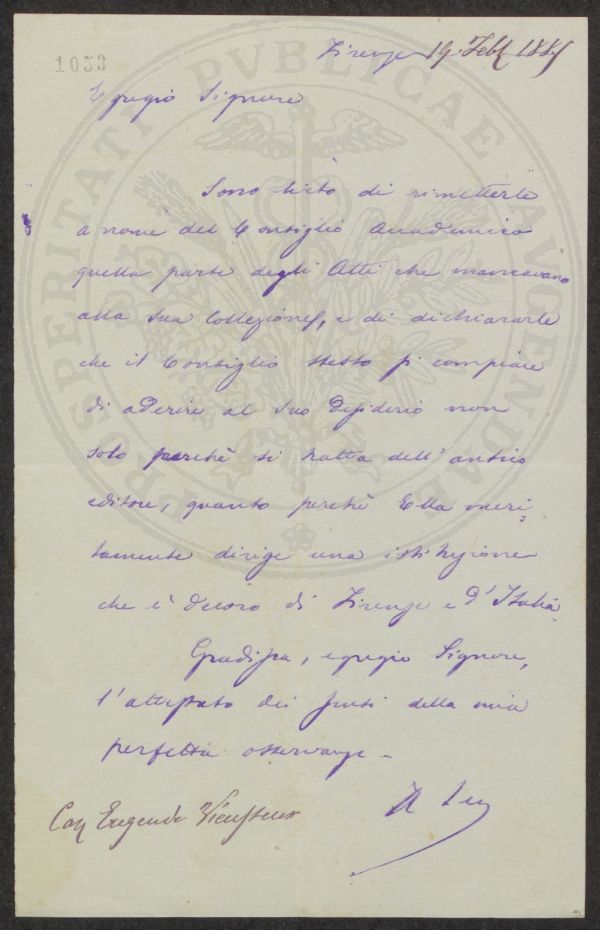 1053
Firenze 19. Feb 188
Egregio Signore
Sono lieto di rimetterle
a nome del Consiglio Accademico
quella parte degli Atti che mancavano
alla sua Collezione, e di dichiararle
che il Consiglio stesso si compiace
di aderire al suo desiderio non
solo perchè si tratta dell'antico
editore, quanto perchè Ella meri=
tamente dirige una istituzione
che è decoro di Firenze e d'Italia
Gradisca, egregio Signore,
l'attestato dei sensi della mia
perfetta osservanza -
Il
Cav Eugenio Vieusseux
PROSPERITATI PVBLICAE AVGENDAE